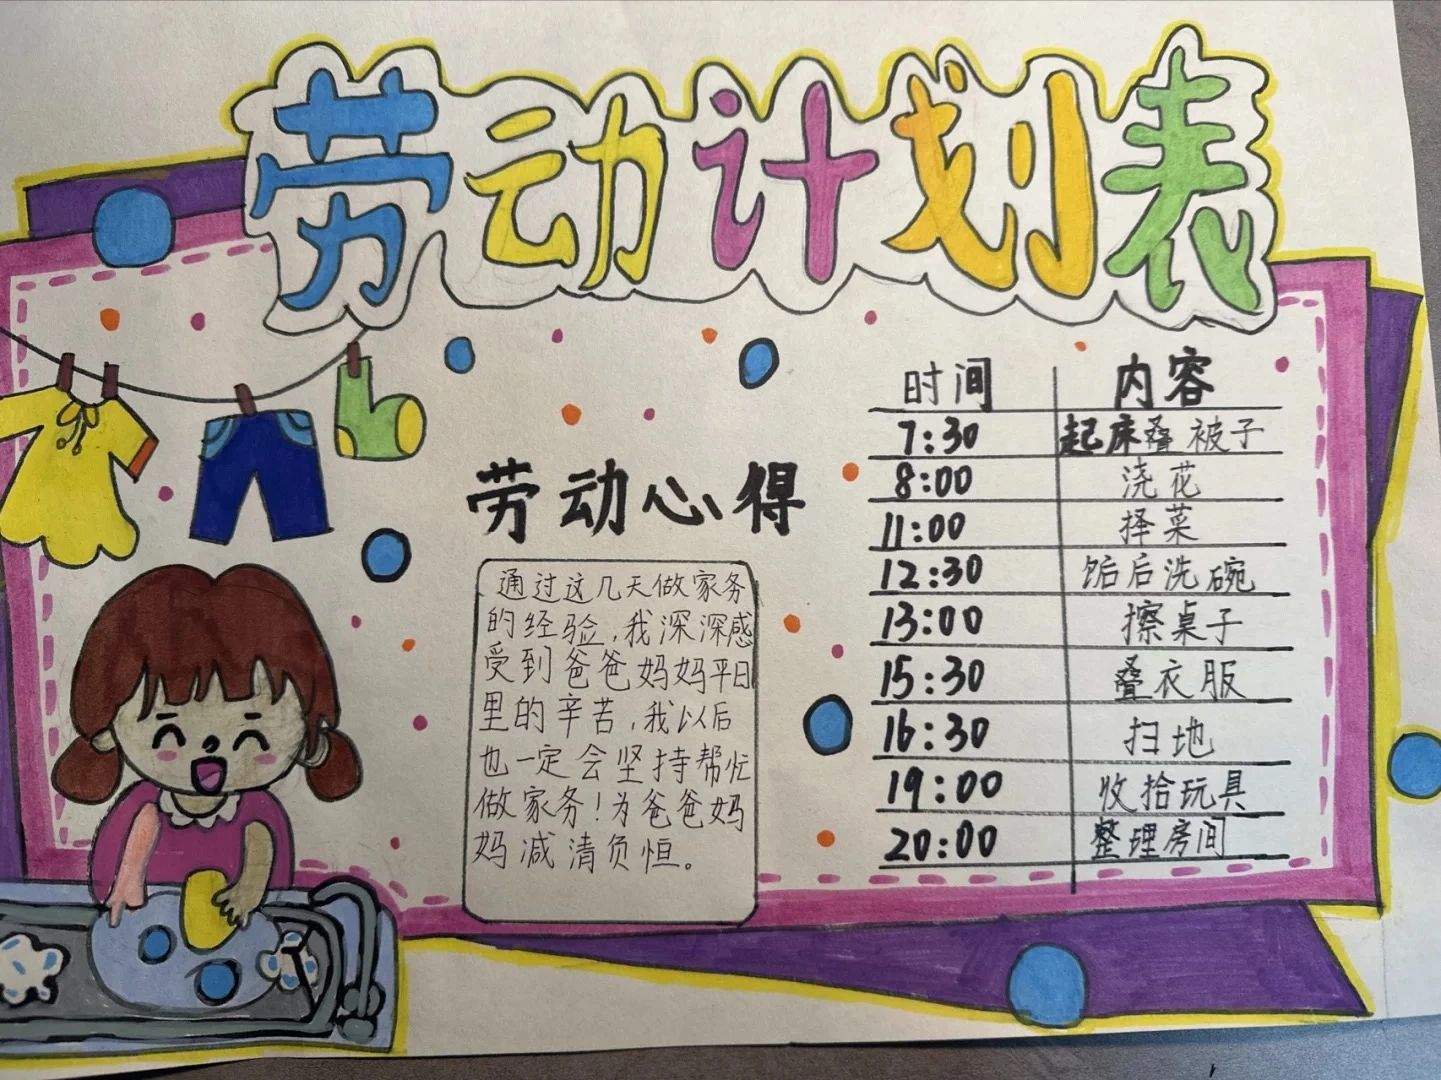 劳动计划表
劳动心得
通过这几天做家务
的经验,我深深感
受到爸爸妈妈平日
里的辛苦,我以后
也一定会坚持帮忙
做家务!为爸爸妈
妈减清负恒。
时间 内容
7:30 起床叠被子
8:00 浇花
11:00 择菜
12:30 饭后洗碗
13:00 擦桌子
15:30 叠衣服
16:30 扫地
19:00 收拾玩具
20:00 整理房间